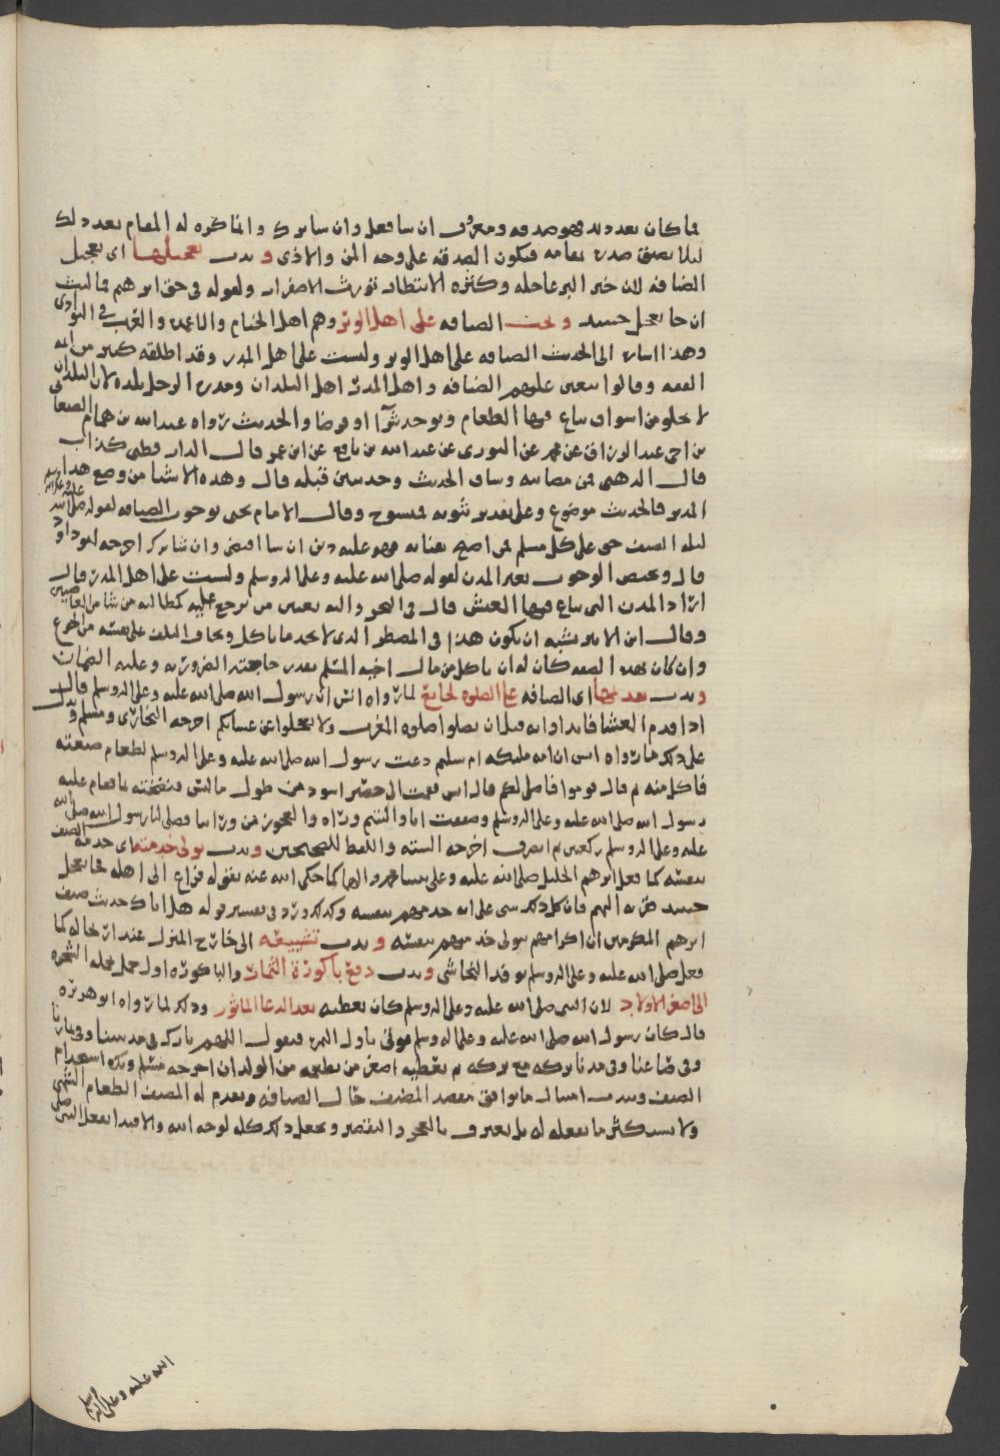 فما كان بعد ذلك فهو صدقة ومعروف ان شا فعل وان شا ترك وانما كره له المقام بعد ذلك
ليلا يضيق صدره بمقامه فتكون الصدقة على وجه المن والاذى وندب تعجيلها اى تعجيل
الضيافه لان خير البر عاجله وكثره الانتظار تورث الاصفرار ولقوله فى حق ابرهيم فما لبث
ان جا بعجل حنيذ وتجب الضيافه على اهل الوبر وهم اهل الخيام والاعمده والعرب فى البوادى
وهذا اشاره الى الحديث الضيافه على اهل الوبر وليست على اهل المدر وقد اطلقه كثير من ايمه
الفقه وقالوا يتعين عليهم الضيافه واهل المدر اهل البلدان وحدره الرجل بلده لان البلدان
لا تخلو من اسواق يباع فيها الطعام ويوجد شرآا او قرضا والحديث رواه عبد الله بن همام الصنعانى
بن اخى عبد الرزاق عن معمر عن الثورى عن عبد الله عن نافع عن ابن عمر قال الدار قطنى كذاب
قال الذهبى من مصايبه وساق الحديث وحديثين قبله قال وهذه الاشيا من وضع هذا
المدبر فالحديث موضوع وعلى تقدير ثبوته فمنسوخ وقال الامام يحيى بوجوب الضيافه لقوله صلى الله عليه وعلى اله وسلم
ليله الضيف حق على كل مسلم فمن اصبح بفنايه فهو عليه دين ان شا اقتضى وان شا ترك اخرجه ابو داود
قال ويختص الوجوب بغير المدن لقوله صلى الله عليه وعلى اله وسلم وليست على اهل المدر قال
اراد المدن التى يباع فيها العيش قال فى البحر واليه تعيين من يرجع عليه كمطالبه من شا من الغاصبين
وقال ابن الاثير يشبه ان يكون هذا فى المضطر الذى لا يجد ما ياكل ويخاف التلف على نفسه من الجوع
وان كان بهذه الصفه كان له ان ياكل من مال اخيه المسلم بقدر حاجته الضروريه وعليه الضمان
وندب تقديمها اى الضيافه على الصلوه لحاجة لما رواه انس ان رسول الله صلى الله عليه وعلى اله وسلم قال
اذا قدم العشا فابداوا به قبل ان تصلوا صلوه المغرب ولا تعجلوا عن عشايكم اخرجه البخارى ومسلم ويدل
على ذلك ما رواه انس ان امه مليكه ام سليم دعت رسول الله صلى الله عليه وعلى اله وسلم لطعام صنعته
فاكل منه ثم قال قوموا فاصلى لكم قال انس فقمت الى حصير اسود من طول ما لبس فنضحته بما فقام عليه
رسول الله صلى الله عليه وعلى اله وسلم وصففت انا واليتيم وراه والعجوز من وراينا فصلى لنا رسول الله صلى الله
عليه وعلى اله وسلم ركعتين ثم انصرف اخرجه السته واللفظ للصحيحين وندب تولى خدمته اى خدمه الضيف
بنفسه كما فعل ابرهيم الخليل صلى الله عليه وعلى نبينا محمد واله كما حكى الله عنه بقوله فراغ الى اهله فجا بعجل
حنيذ فقربه اليهم فان كل ذلك يبنى على انه خدمهم بنفسه وكذلك ورد فى تفسير قوله هل اتاك حديث ضيف
ابرهيم المكرمين ان اكرامهم تولى خدمتهم بنفسه وندب تشييعه الى خارج المنزل عند ارتحاله كما
فعل صلى الله عليه وعلى اله وسلم بوفد النجاشى وندب دفع باكورة الثمار والباكوره اول حمل تحمله الشجره
الى اصغر الاولاد لان النبى صلى الله عليه وعلى اله وسلم كان يعطيه بعد الدعا الماثور وذلك لما رواه ابو هريره
قال كان رسول الله صلى الله عليه وعلى اله وسلم يوتى باول الثمر فيقول اللهم بارك فى مدينتنا وفى ثمارنا
وفى صاعنا وفى مدنا بركه مع بركه ثم يعطيه اصغر من يحضره من الولدان اخرجه مسلم ويكره استخدام
الضيف وندب امتثال ما يوافق مقصد المضيف حال الضيافه وتقدم له المضيف الطعام الشهى
ولا يستكثر ما يفعله له بل يعترف بالعجز والتقصير ويجعل ذلك كله لوجه الله والاقتدا بفعل النبى صلى
الله عليه وعلى اله وسلم